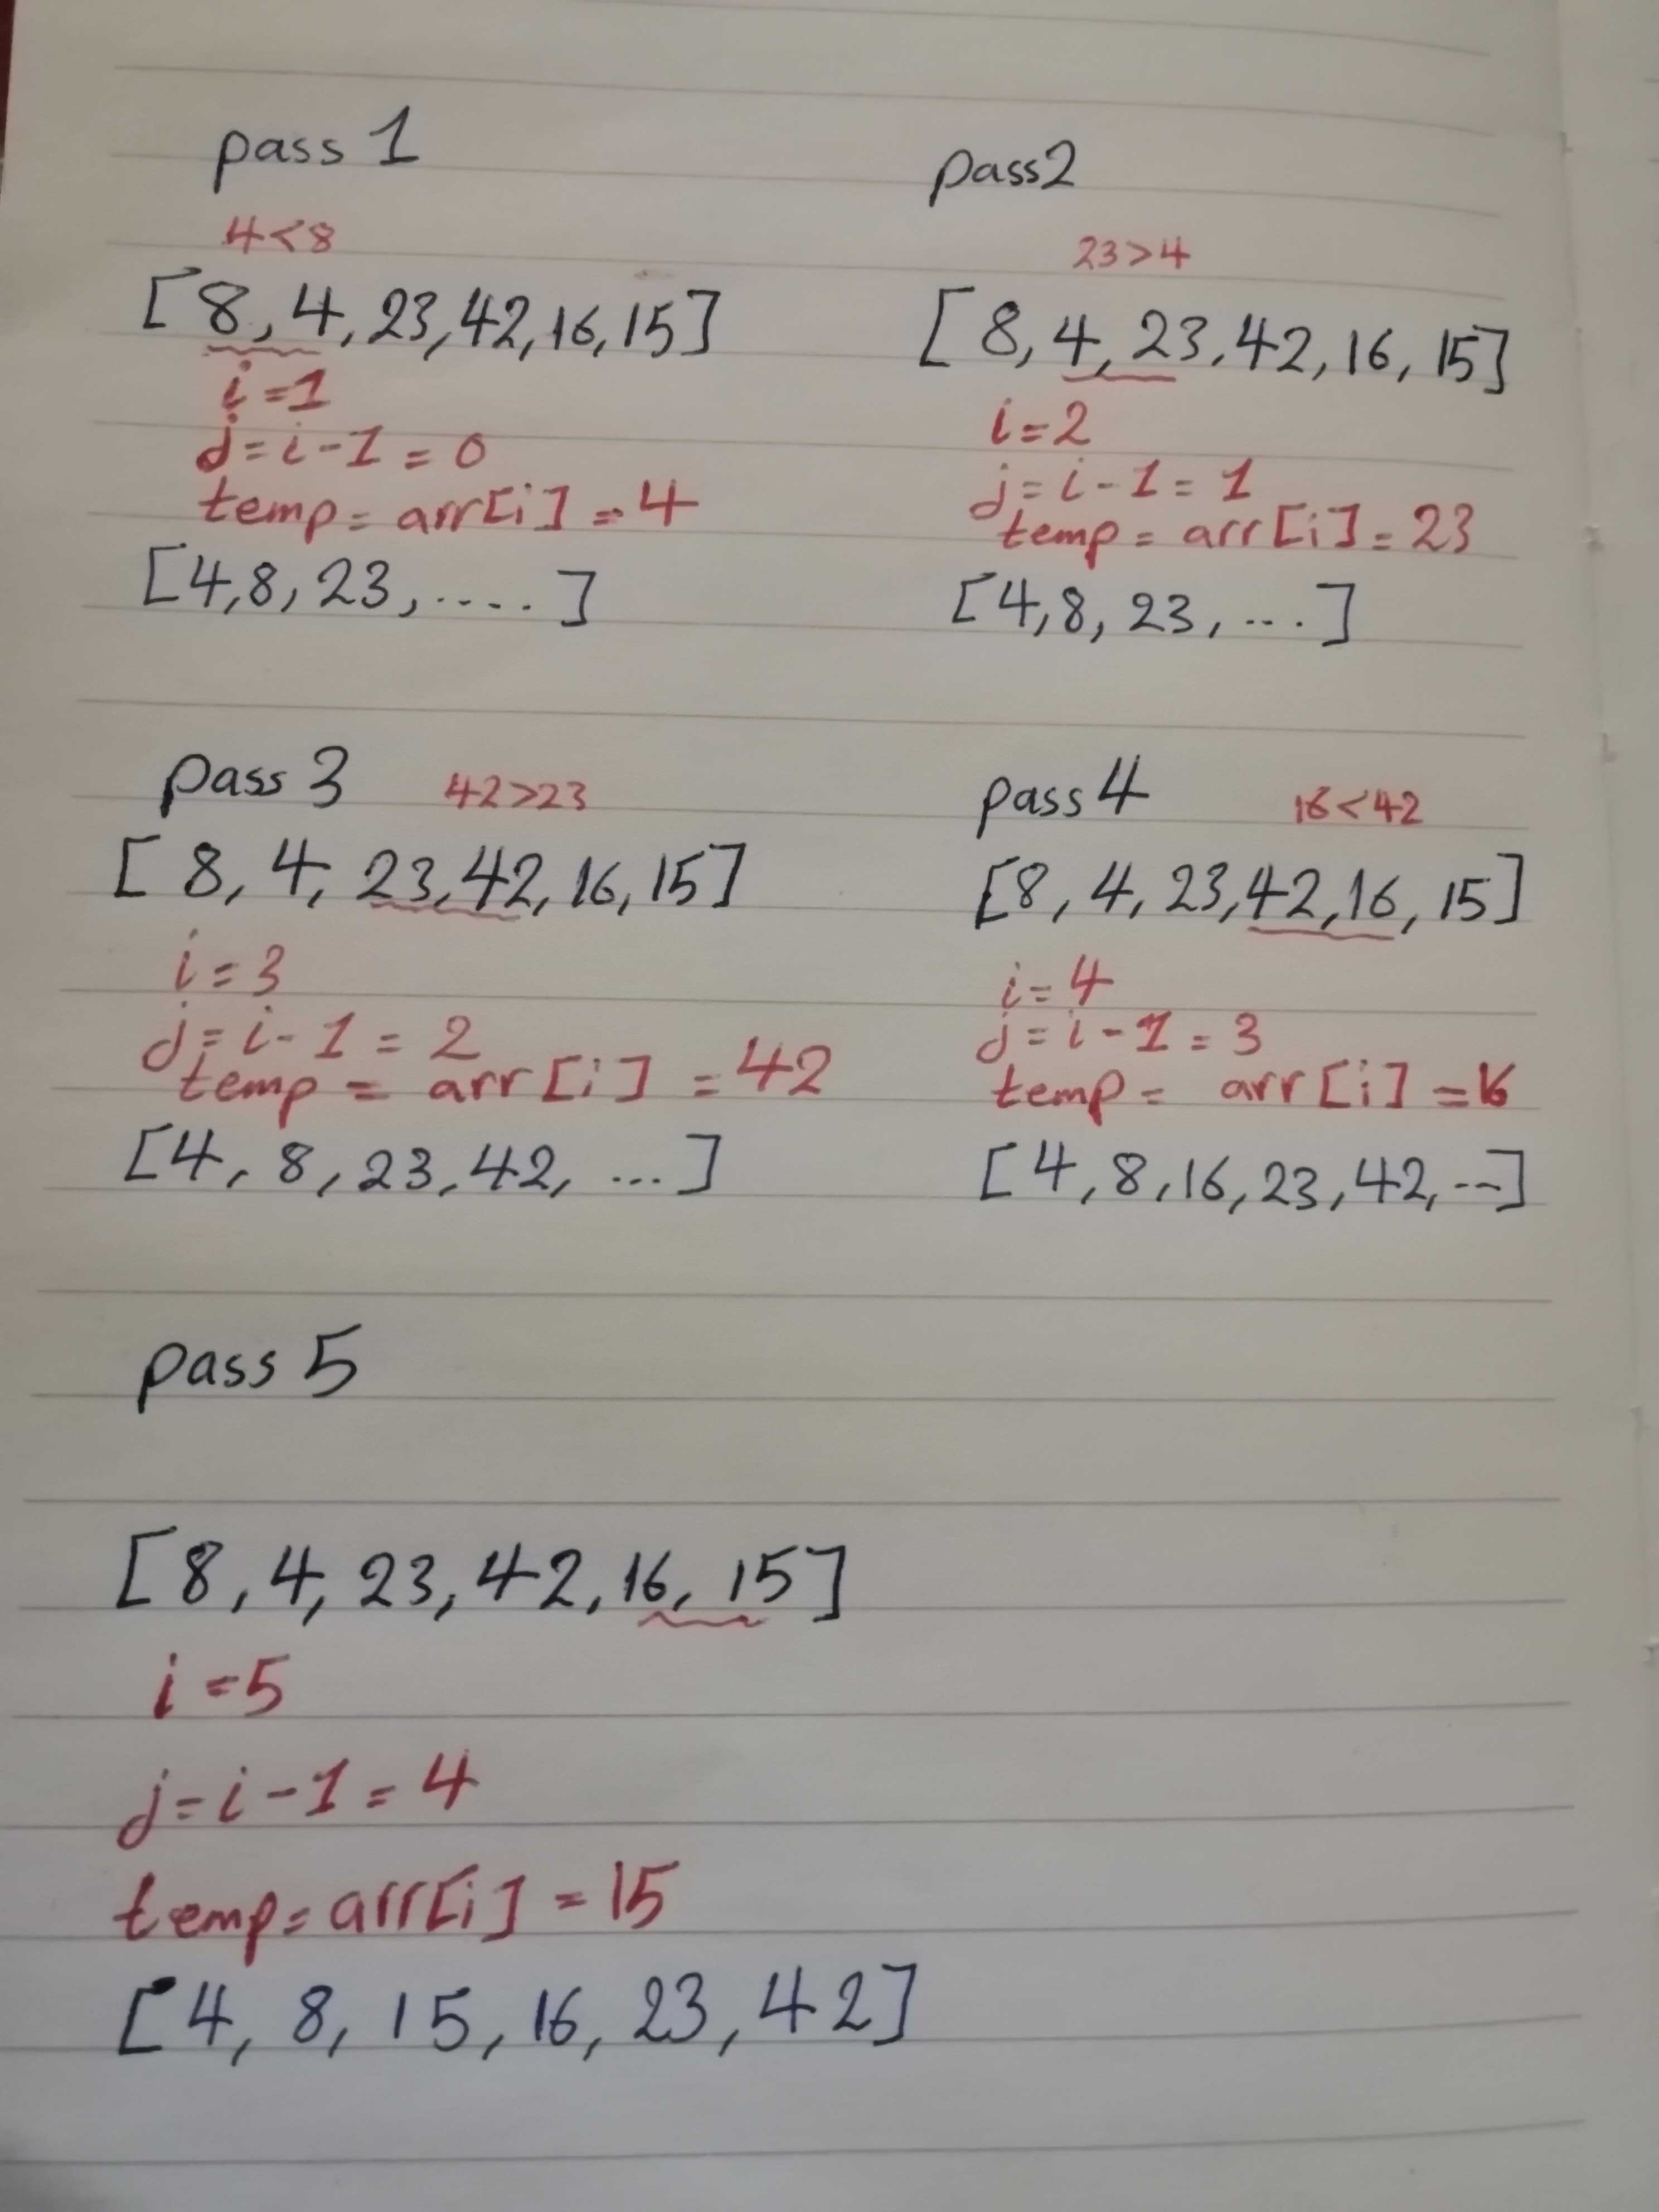 pass 1
4<8
[8, 4, 23, 42, 16, 15]
i=1
j=i-1=0
temp= arr[i] = 4
[4,8, 23, ....]
pass2
23>4
[8, 4, 23, 42, 16, 15]
i=2
j=i-1=1
temp= arr[i]= 23
[4,8, 23, ...]
pass 3 42>23
[8, 4, 23, 42, 16, 15]
i=3
j=i-1=2
temp = arr[i] = 42
[4, 8, 23, 42, ...]
pass 4 16<42
[8, 4, 23, 42, 16, 15]
i=4
j=i-1=3
temp= arr[i] =16
[4, 8, 16, 23, 42, --]
pass 5
[8, 4, 23, 42, 16, 15]
i=5
j=i-1=4
temp= arr[i] = 15
[4, 8, 15, 16, 23, 42]